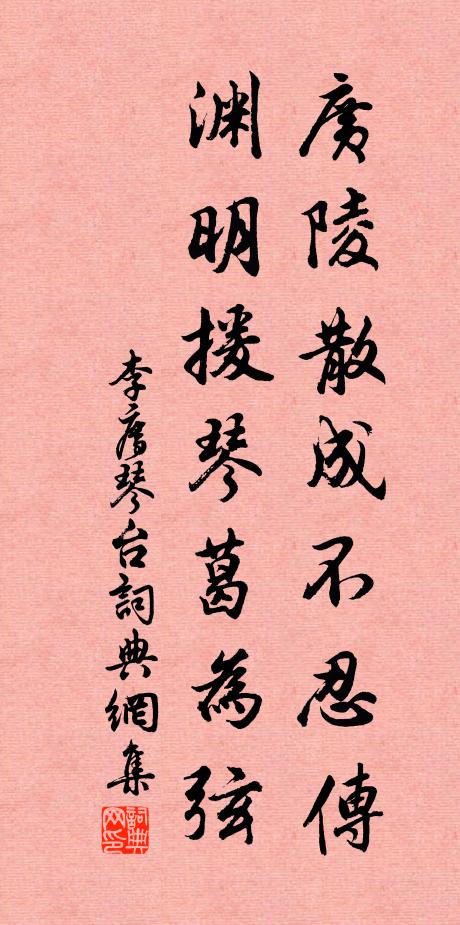 廣陵散成不忍傳
淵明援琴葛為弦
李廌琴台詞典網集
詞典
网印